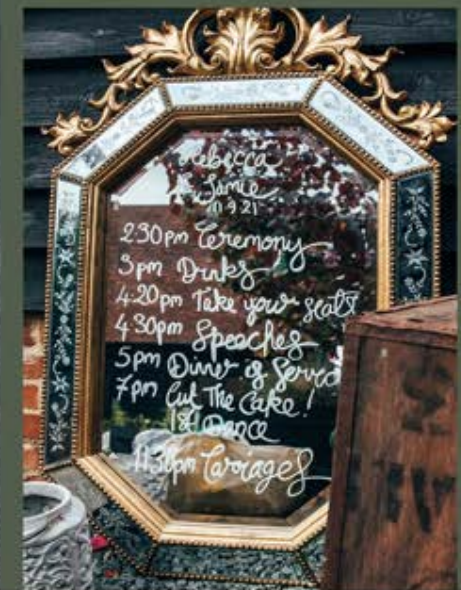 Rebecca
& Jamie
10.9.21
2:30pm Ceremony
3pm Drinks
4:20pm Take your seats
4:30pm Speeches
5pm Dinner is Served
7pm Cut The Cake!
1st Dance
11:30pm Carriages